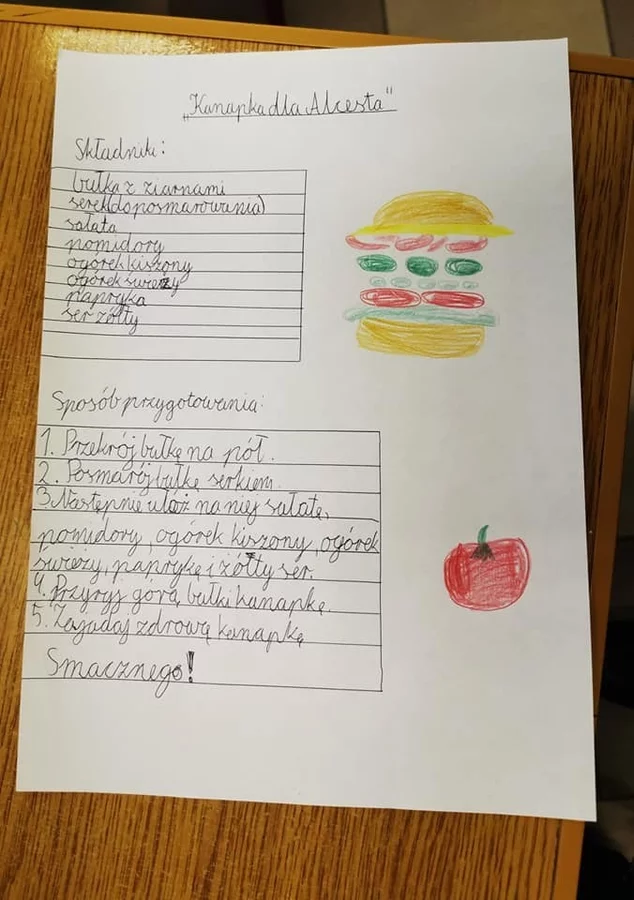 „Kanapka dla Alcesta"
Składniki:
bułka z ziarnami
serek(do posmarowania)
sałata
pomidory
ogórek kiszony
ogórek świeży
papryka
ser żółty
Sposób przygotowania:
1. Przekrój bułkę na pół.
2. Posmarój bułkę serkiem.
3. Następnie ułóż na niej sałatę,
pomidory, ogórek kiszony, ogórek
świeży, paprykę i żółty ser.
4. Przyryj górą bułki kanapkę.
5. Zajadaj zdrową kanapkę
Smacznego!